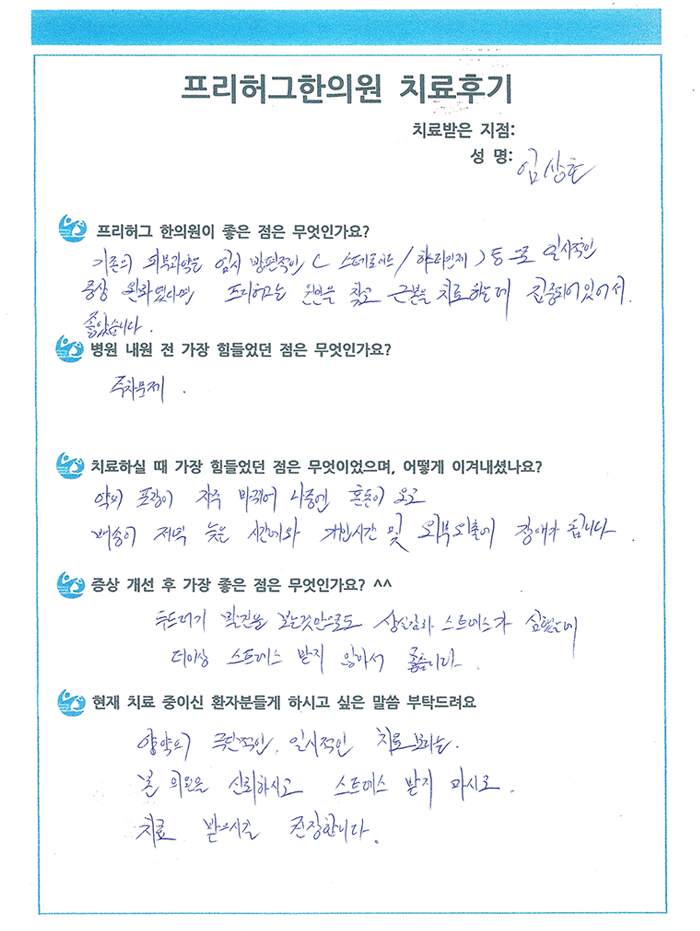 프리허그한의원 치료후기
치료받은 지점:
성 명: 임상훈
프리허그 한의원이 좋은 점은 무엇인가요?
기존의 피부과약은 임시 방편적인 ( 스테로이드 / 항히스타민제 ) 등으로 일시적인
증상 완화였다면 프리허그는 원인을 찾고 근본을 치료하는데 집중되어있어서
좋았습니다.
병원 내원 전 가장 힘들었던 점은 무엇인가요?
주차문제 .
치료하실 때 가장 힘들었던 점은 무엇이었으며, 어떻게 이겨내셨나요?
약의 포장이 자주 바뀌어 나중엔 혼돈이 오고
배송이 저녁 늦은 시간에와 개인시간 및 외부외출에 장애가 됩니다.
증상 개선 후 가장 좋은 점은 무엇인가요? ^^
두드러기 발진을 보는것만으로도 상실감과 스트레스가 심했는데
더이상 스트레스 받지 않아서 좋습니다.
현재 치료 중이신 환자분들게 하시고 싶은 말씀 부탁드려요
양약의 극단적인, 일시적인 치료보다는.
본 의원을 신뢰하시고 스트레스 받지 마시고.
치료 받으시길 권장합니다.